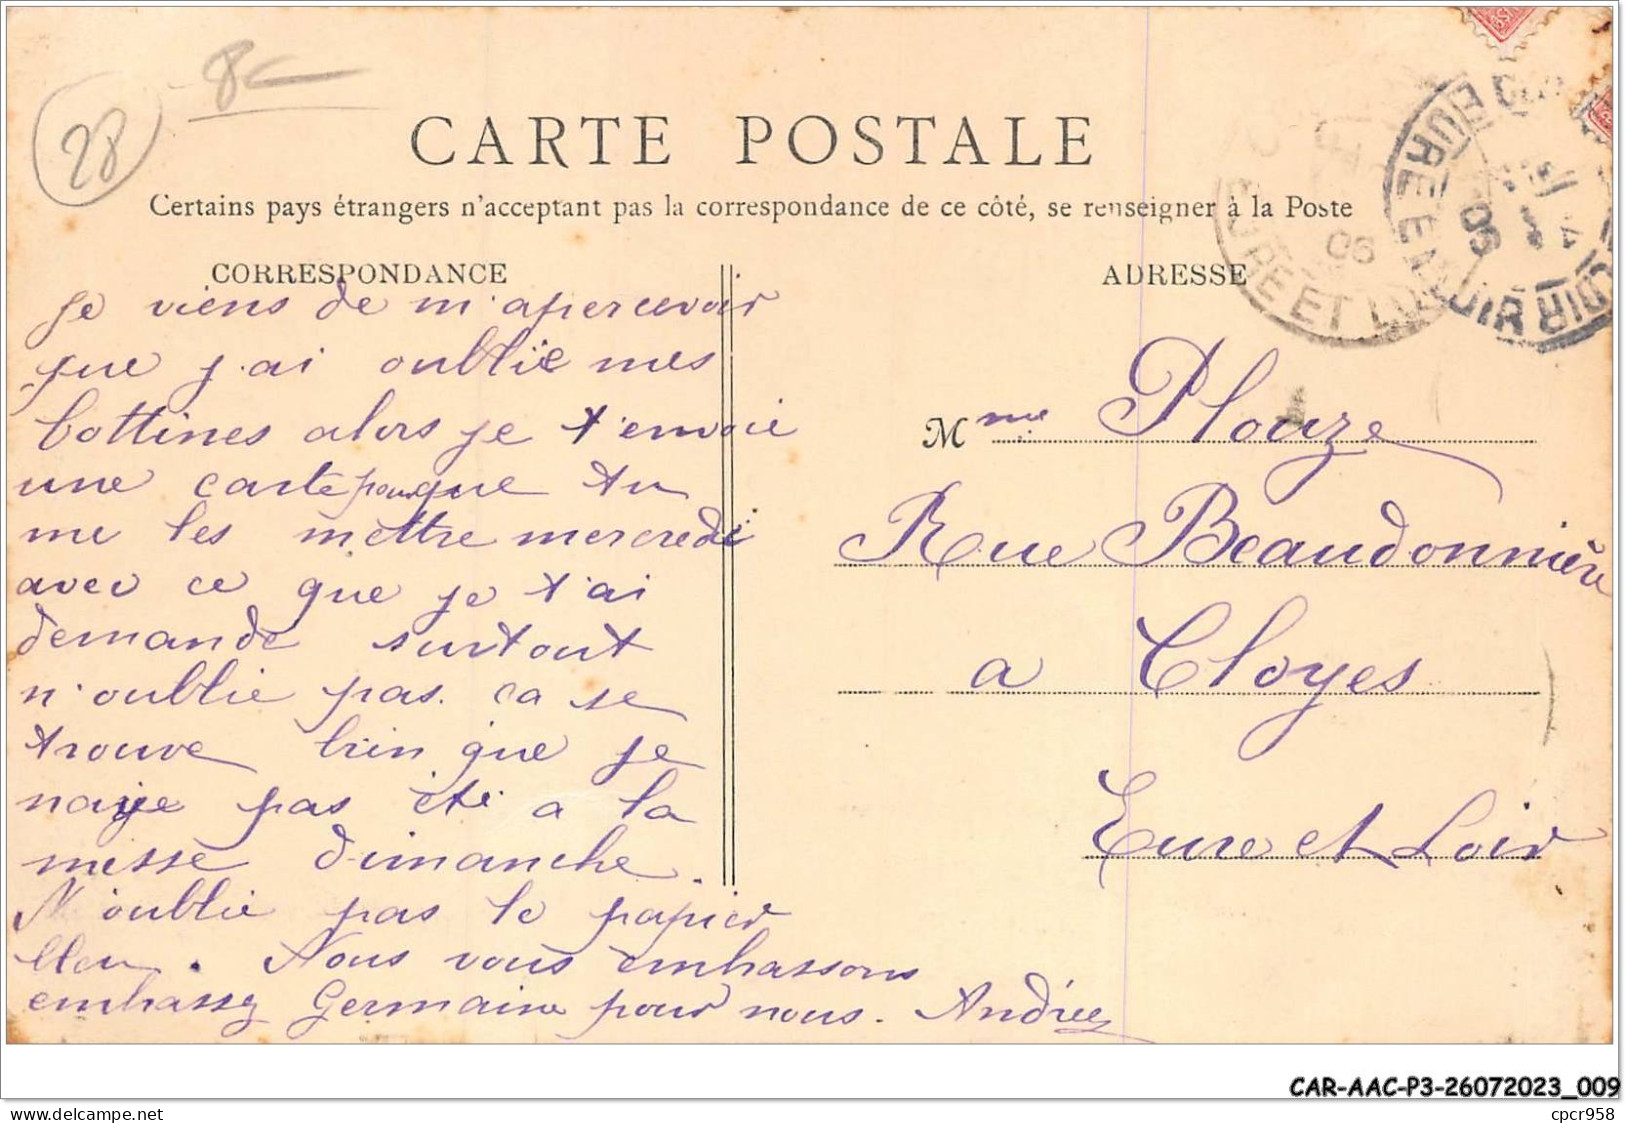 28
8€
CARTE POSTALE
Certains pays étrangers n'acceptant pas la correspondance de ce côté, se renseigner à la Poste
CORRESPONDANCE
Je viens de m'apercevoir
que j'ai oublié mes
bottines alors je t'envoie
une carte pour que tu
me les mettre mercredi
avec ce que je t'ai
demande surtout
n'oublie pas. ça se
trouve bien que je
naye pas été a la
messe dimanche.
N'oublie pas le papier
bleu. Nous vous embrassons
embassez Germaine pour nous. Andrée
ADRESSE
Mme Plouze
Rue Beaudonnière
a Cloyes
Eure et Loir
EURE ET LOIR
06
EURE EN LOIR
06
CAR-AAC-P3-26072023_009
cpcr958